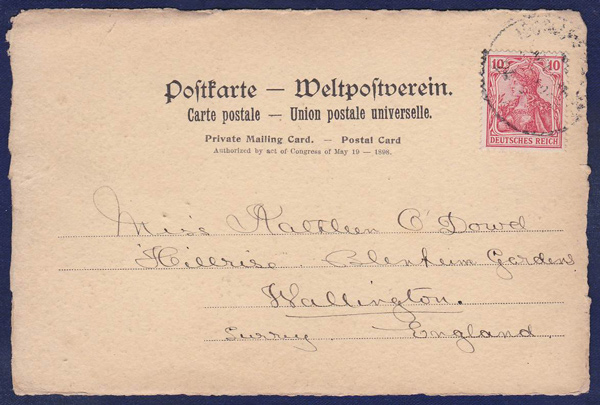 10 10
DEUTSCHES REICH
Postkarte — Weltpostverein.
Carte postale — Union postale universelle.
Private Mailing Card. — Postal Card
Authorized by act of Congress of May 19 — 1898.
Miss Kathleen O'Dowd
Hillrise. Blenheim Gardens
Wallington.
Surrey. England.